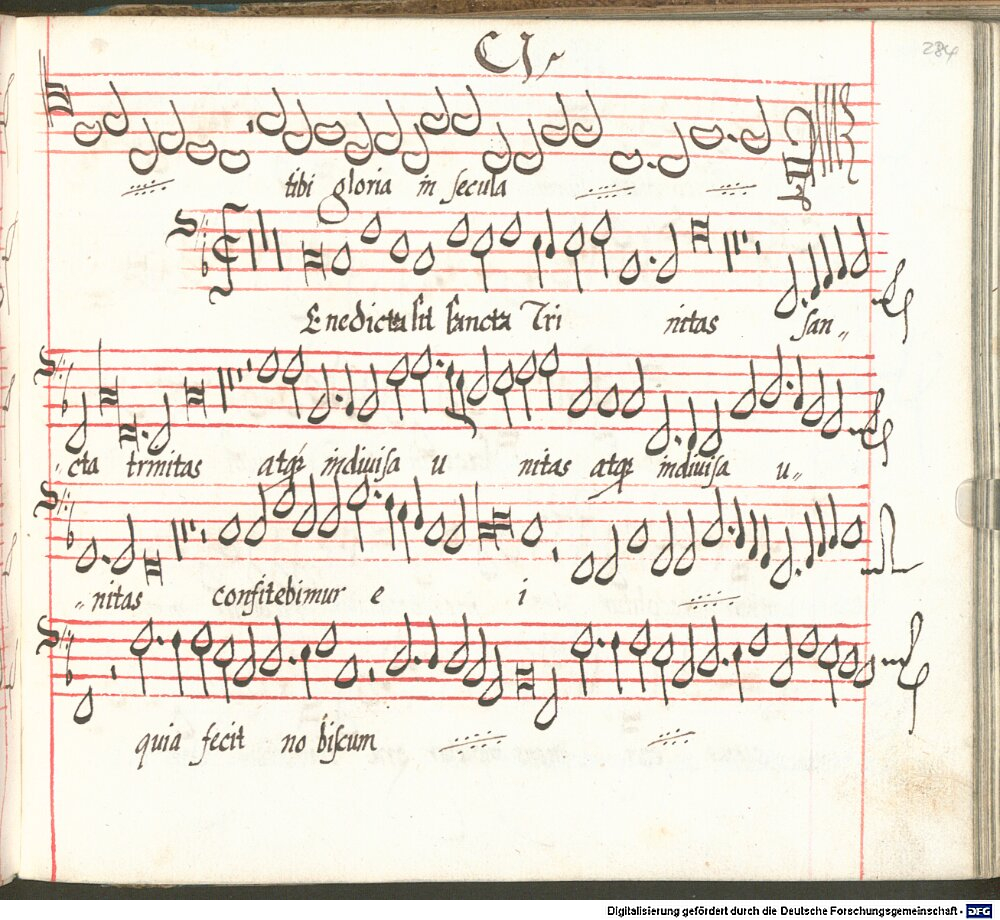 CI
284
tibi gloria in secula
Enedicta sit sancta Tri nitas san-
-cta trinitas atqꝫ indiuisa u nitas atqꝫ indiuisa u-
-nitas confitebimur e i
quia fecit no biscum
Digitalisierung gefördert durch die Deutsche Forschungsgemeinschaft - DFG